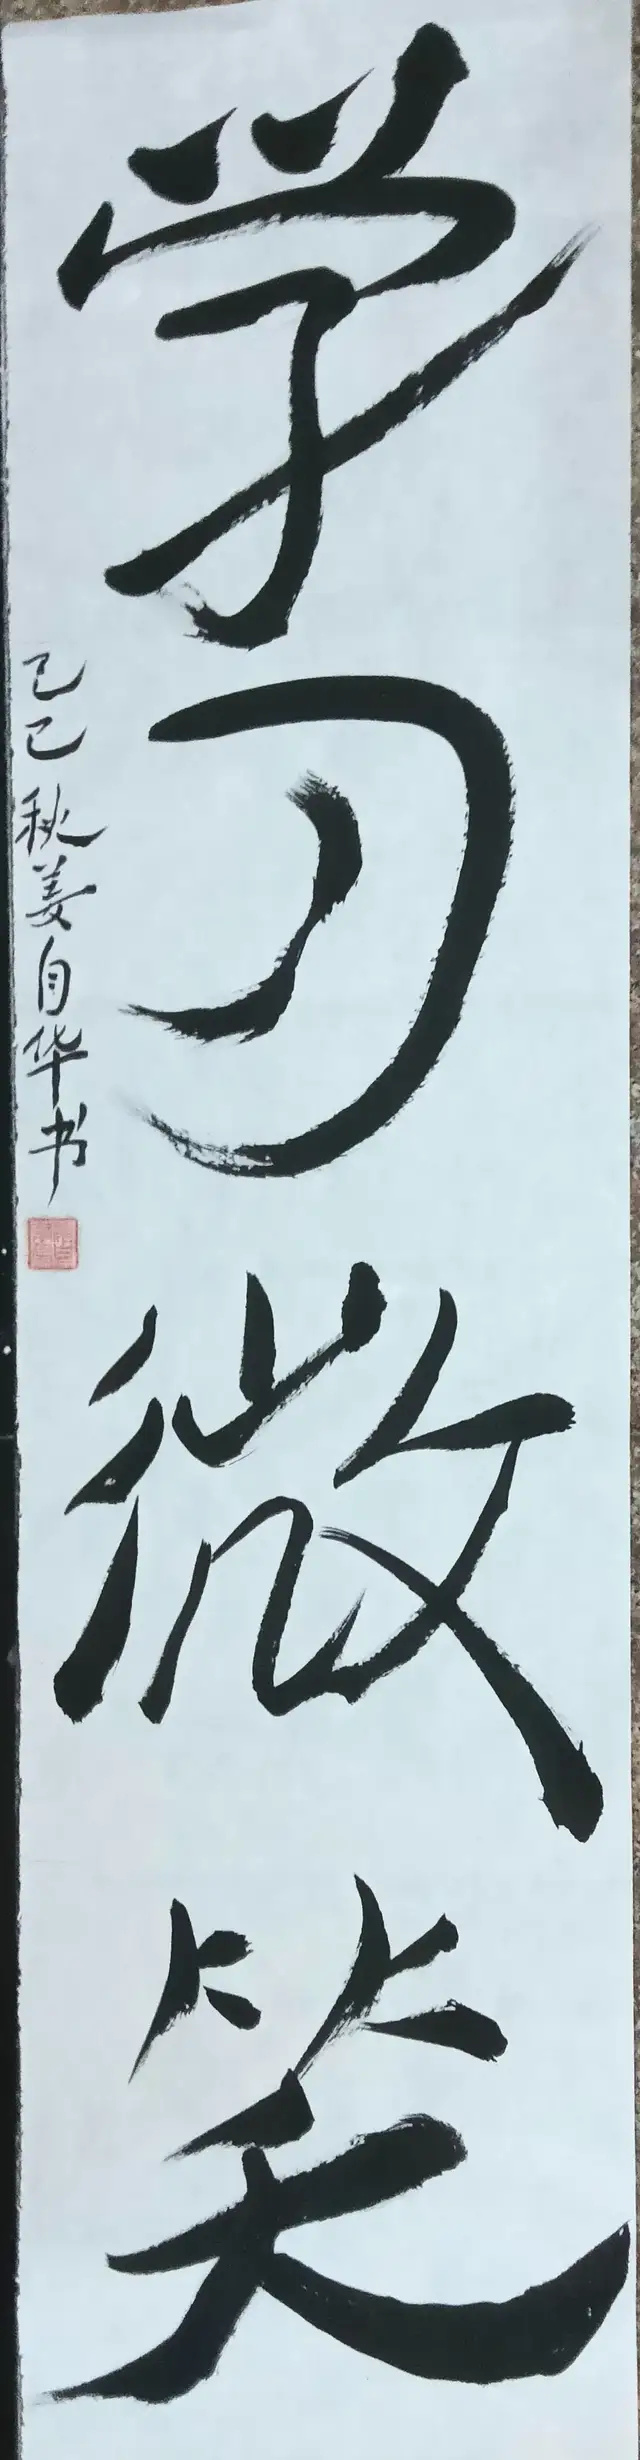 学习微笑
己巳秋姜自华书